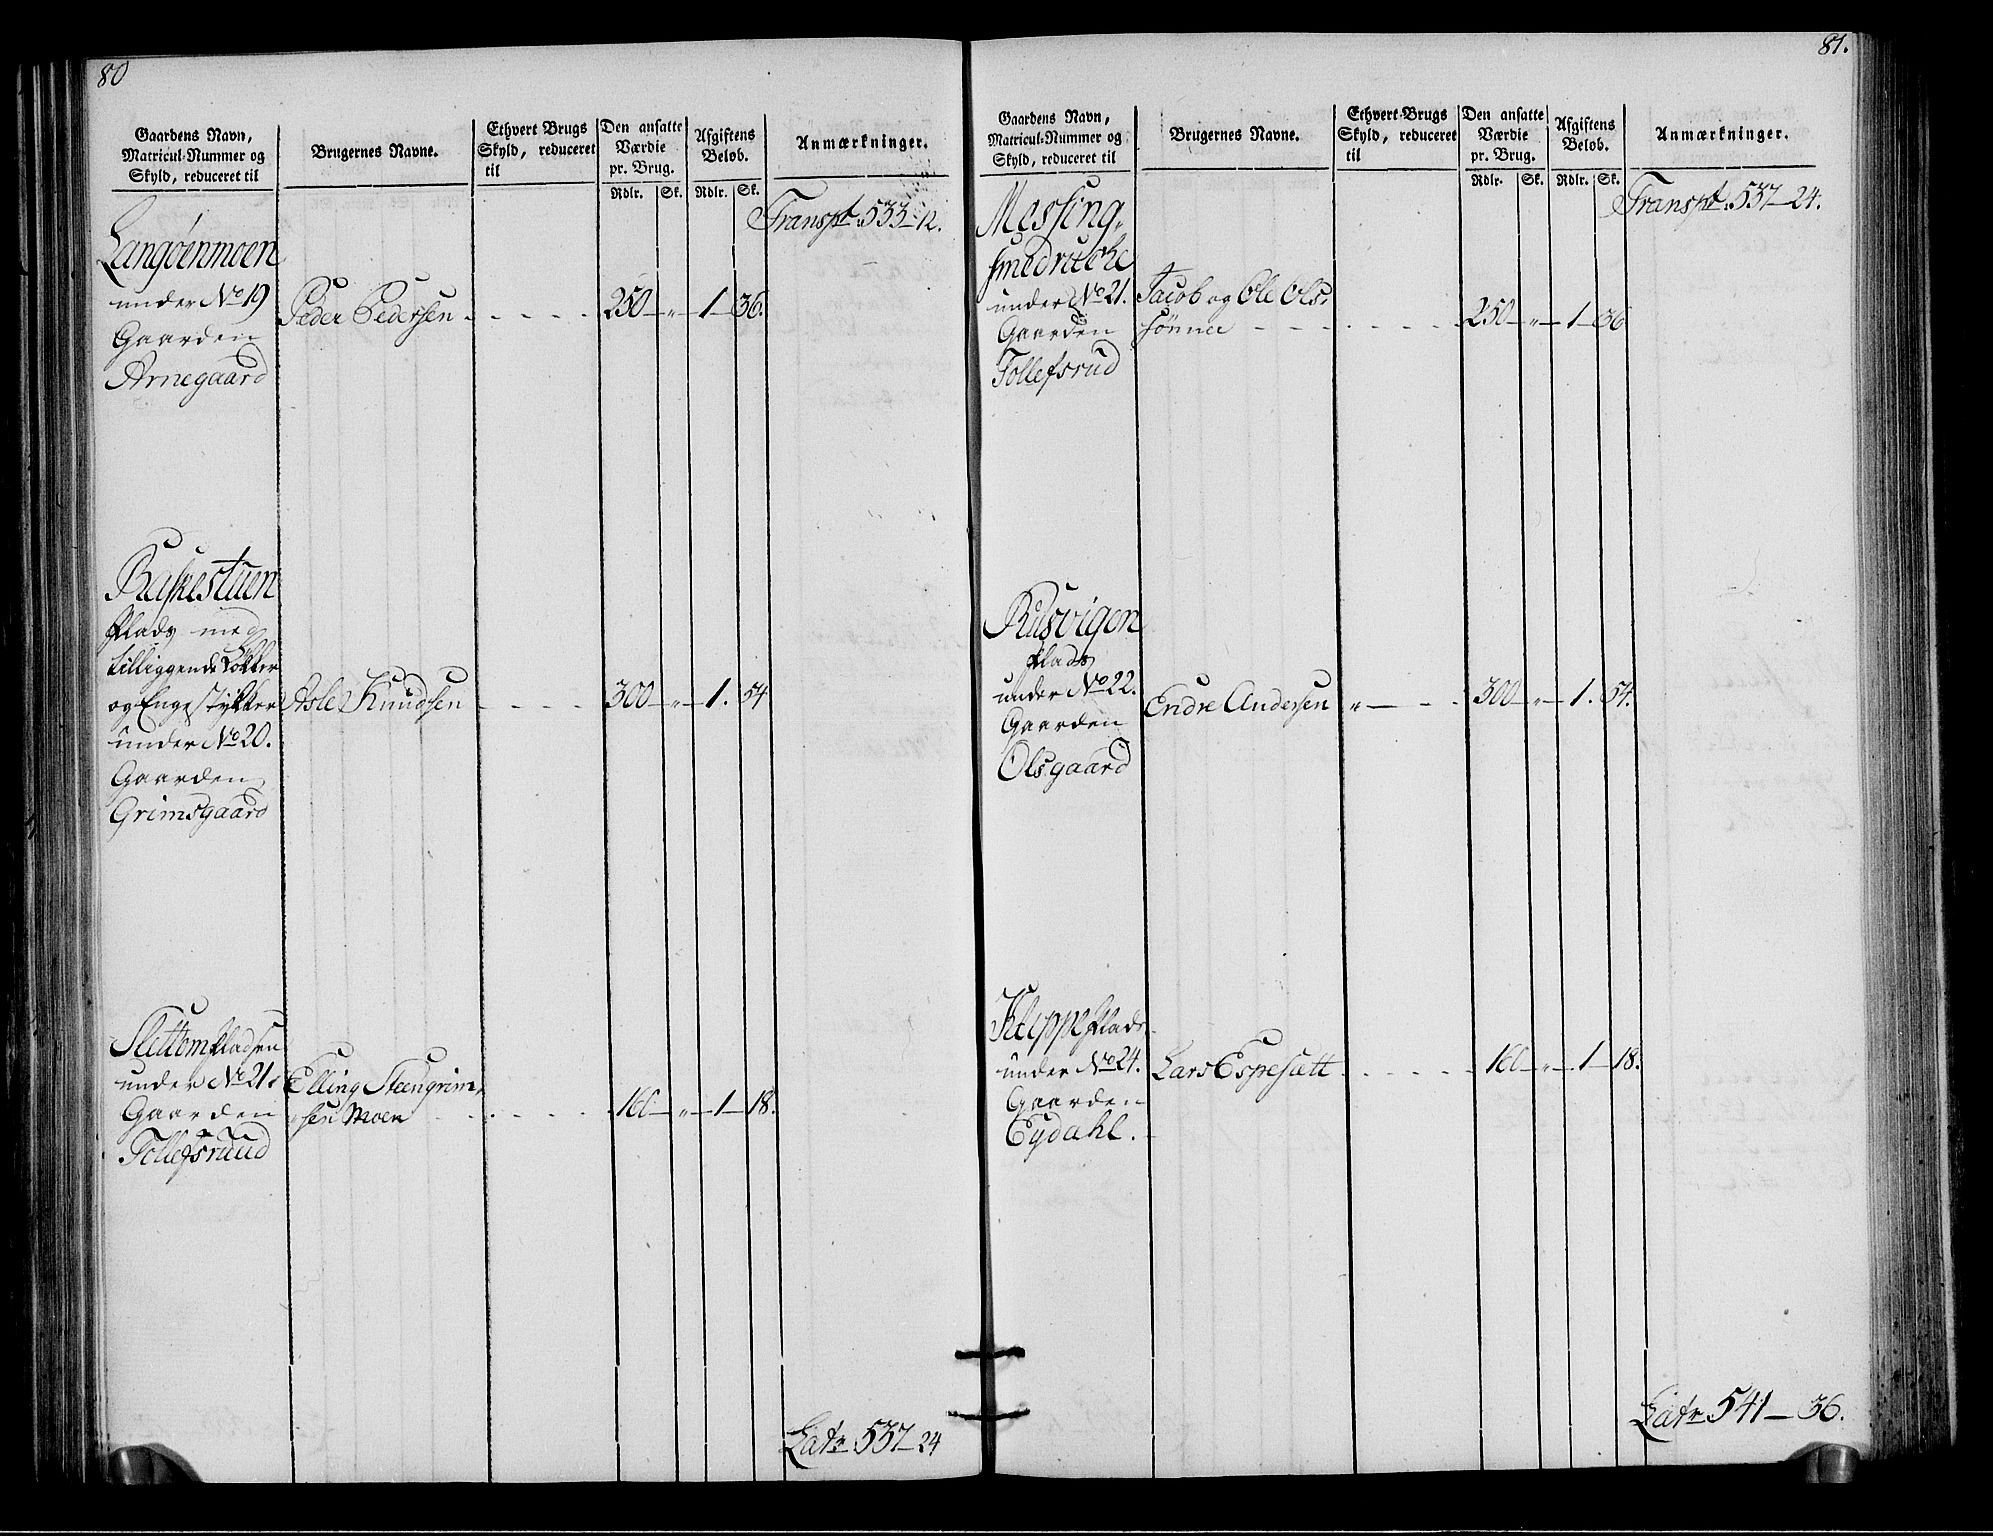 80
Gaardens Navn,
Matricul-Nummer og
Skyld, reduceret til
Brugernes Navne.
Ethvert Brugs
Skyld, reduceret
til
Den ansatte
Værdie
pr. Brug.
Rdlr. Sk.
Afgiftens
Beløb.
Rdlr. Sk.
Anmærkninger.
Transpt. 533-12.
Langøenmoen
under No 19
Gaarden
Arnegaard
Peder Pedersen - - - - - 250 - " - 1 - 36.
Baskestuen
Plads med
tilliggende Løkker
og Engestykker
under No 20.
Gaarden
Grimsgaard
Asle Knudsen - - - - 300 - " - 1. 54
Slettom Pladsen
under No 21.
Gaarden
Tollefsruud
Elling Steengrim-
sen Moen - - - - - 160 - " - 1 - 18.
Latr 537-24
81.
Gaardens Navn,
Matricul-Nummer og
Skyld, reduceret til
Brugernes Navne.
Ethvert Brugs
Skyld, reduceret
til
Den ansatte
Værdie
pr. Brug.
Rdlr. Sk.
Afgiftens
Beløb.
Rdlr. Sk.
Anmærkninger.
Transpt. 537-24.
Messing-
under No 21.
Gaarden
Tollefsrud
Jacob og Ole Ols-
sønner - - - - - - 250 - " - 1 - 36
Rusvigen
Plads
under No 22.
Gaarden
Olsgaard
Endre Andersen " - - - 300 - " - 1. 54.
Klippe Plads
under No 24.
Gaarden
Eydahl.
Lars Espesætt - - - - - 160 - " - 1 - 18.
Latr. 541-36.